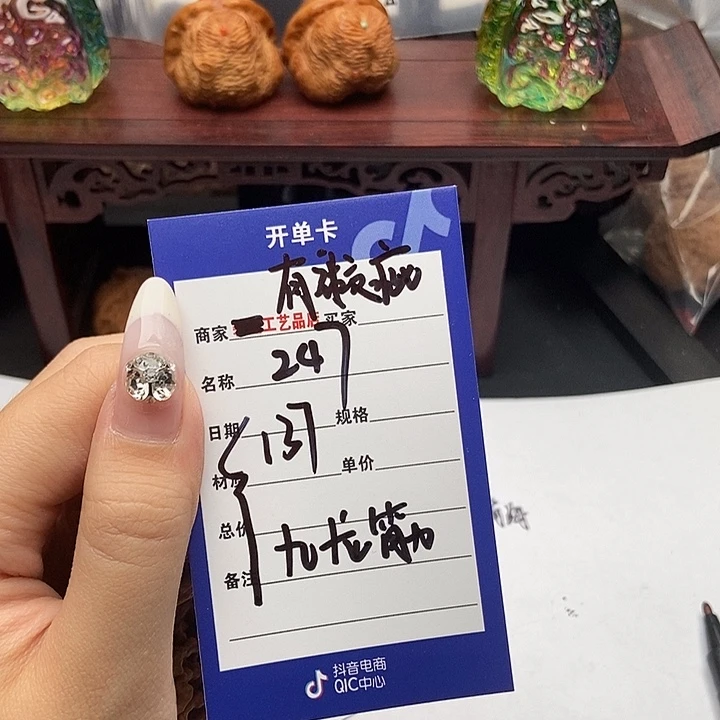 开单卡
有裂疵
商家 工艺品店 买家
名称 247
日期 规格
137
材质 单价
总价
九龙筋
备注
抖音电商
QIC中心